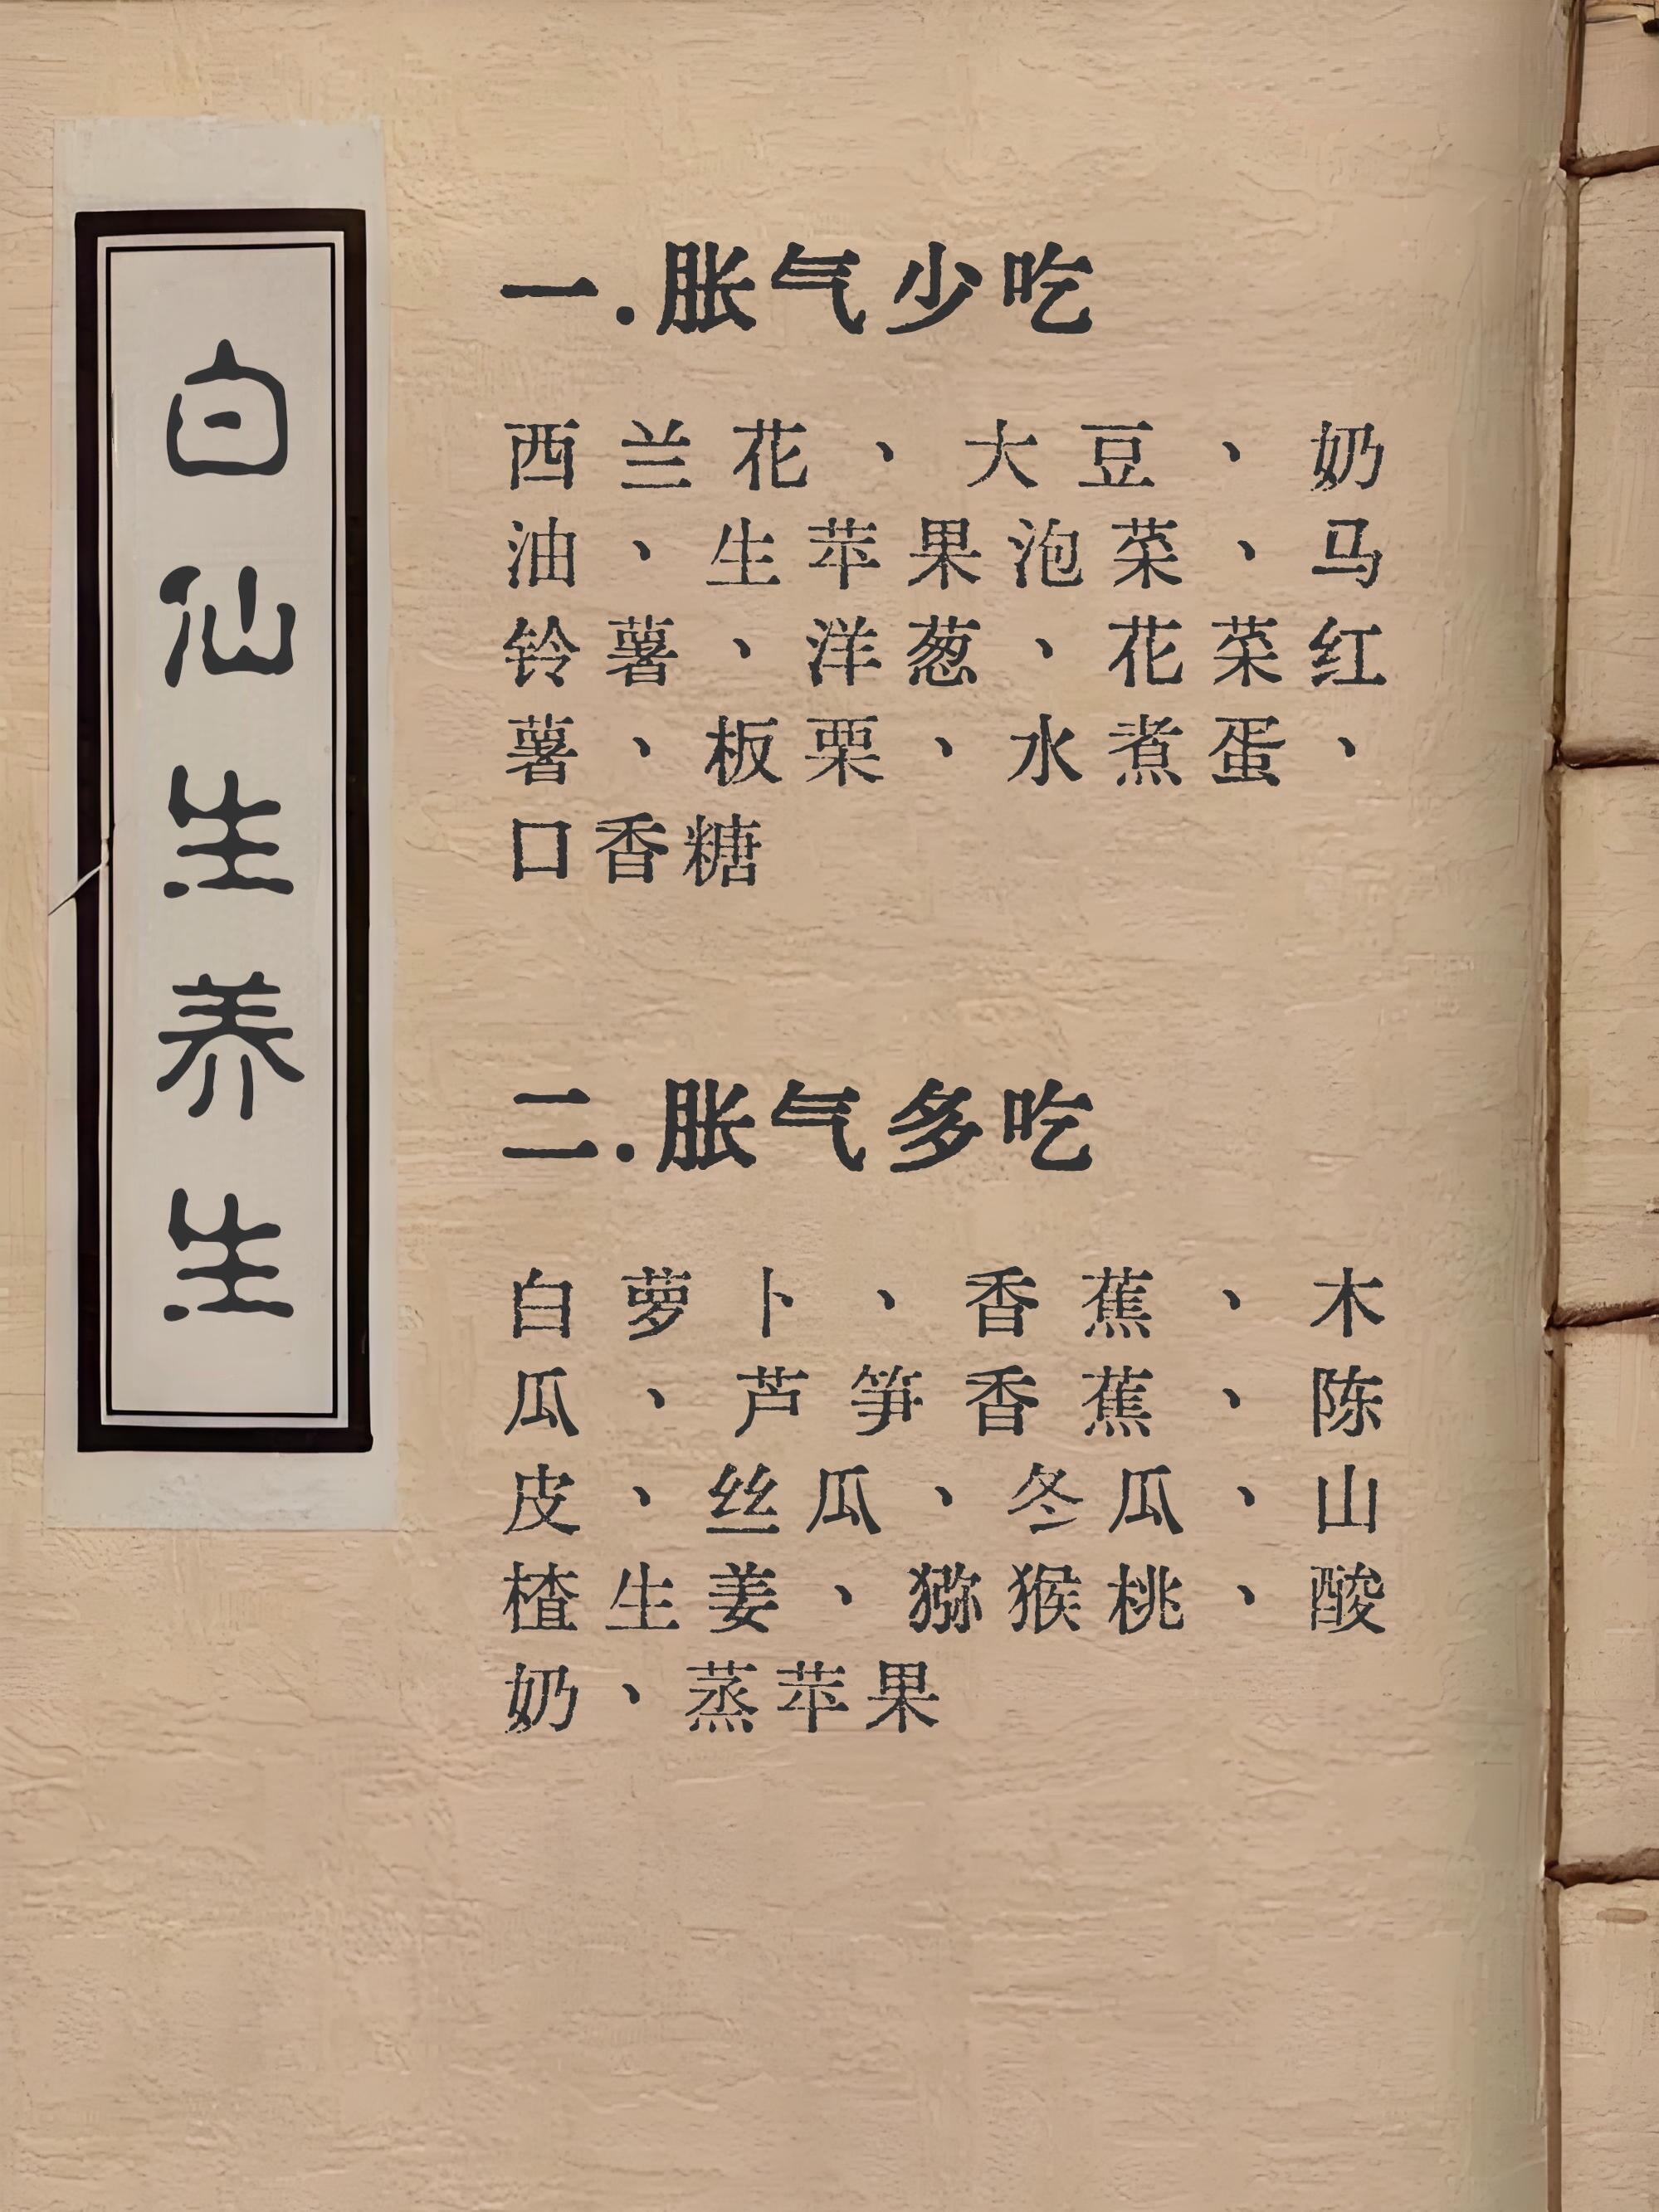 白仙生养生
一.胀气少吃
西兰花、大豆、奶
油、生苹果泡菜、马
铃薯、洋葱、花菜红
薯、板栗、水煮蛋、
口香糖
二.胀气多吃
白萝卜、香蕉、木
瓜、芦笋香蕉、陈
皮、丝瓜、冬瓜、山
楂生姜、猕猴桃、酸
奶、蒸苹果